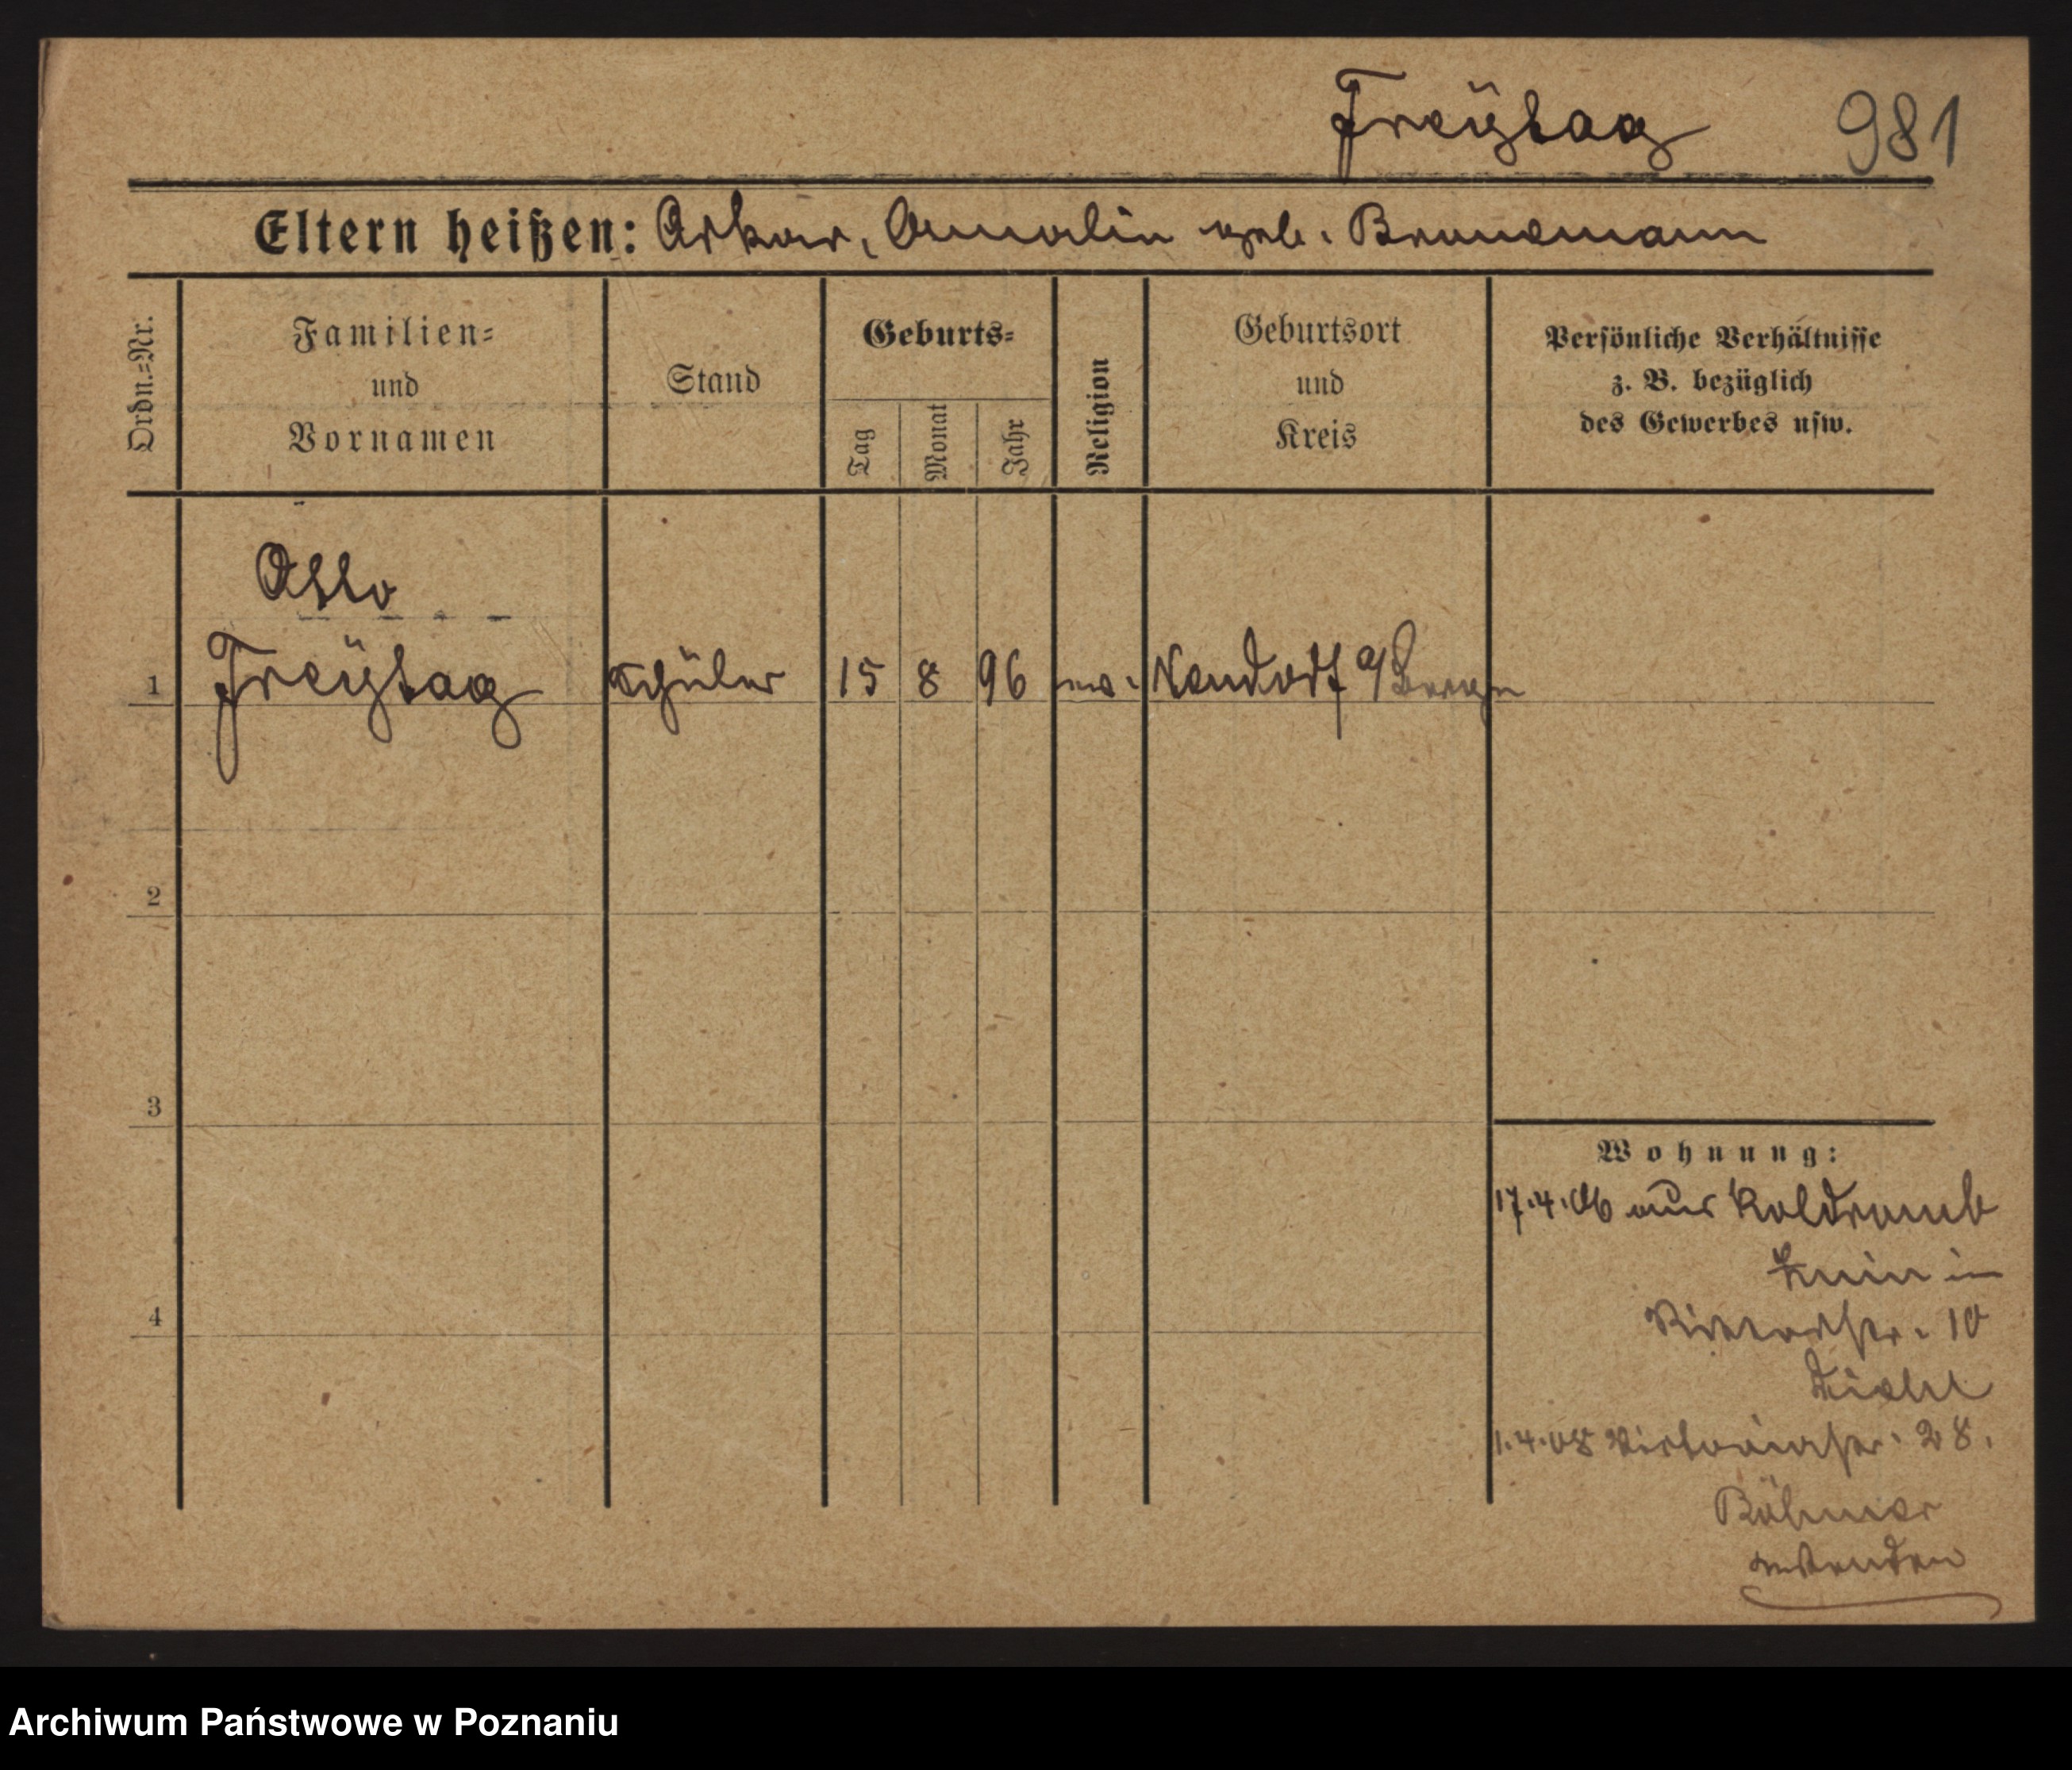 Freÿtag 981
Eltern heißen: Oskar, Amalie geb. Brunemann
Ordn.=Nr.
Familien=
und
Vornamen
Stand
Geburts=
Tag
Monat
Jahr
Religion
Geburtsort
und
Kreis
Persönliche Verhältnisse
z. B. bezüglich
des Gewerbes usw.
Otto
1 Freÿtag Schüler 15 8 96 ev. Neudorf a/Berge
2
3
4
Wohnung:
17.4.06 aus Koldromb
Znin in
Ritterstr. 10
1.4.08 Victoriastr. 28.
Böhmer
wenden
Archiwum Państwowe w Poznaniu